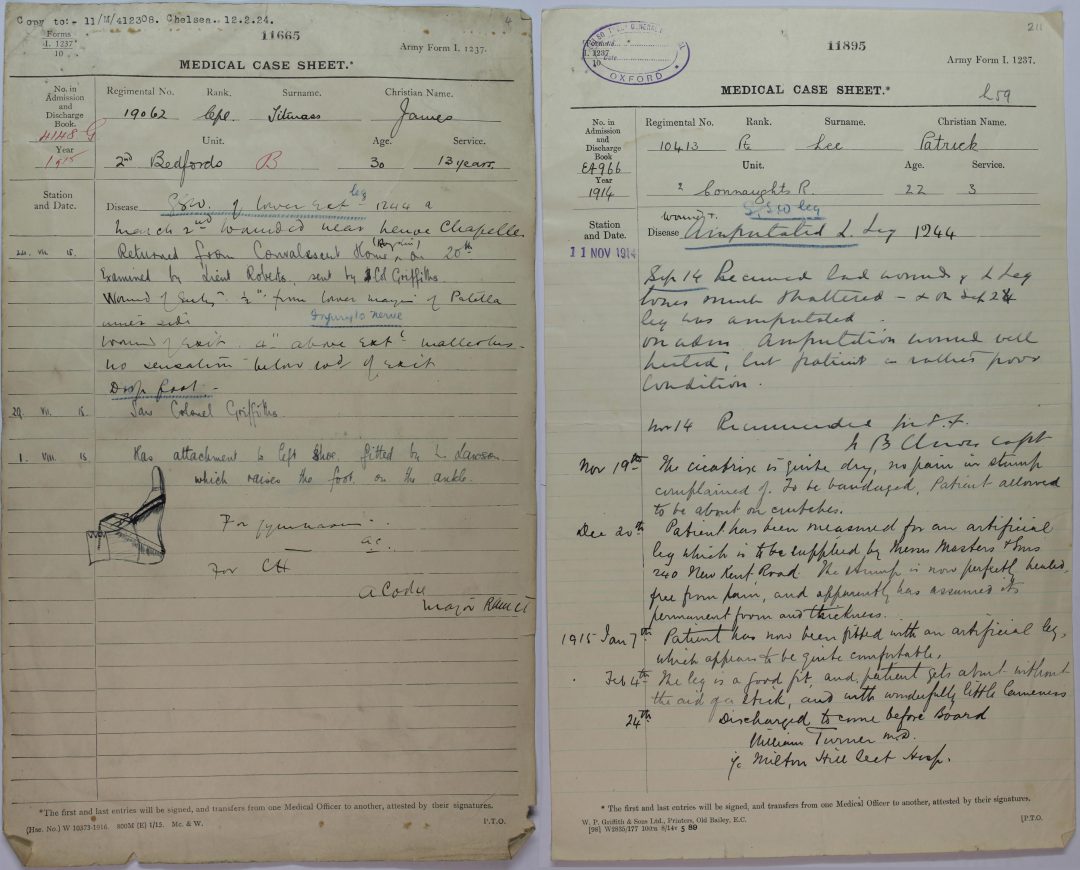 Copy to:- 11/M/412308. Chelsea. 12.2.24.
4
Forms
I. 1237
10
11665
Army Form I. 1237.
MEDICAL CASE SHEET.*
No. in
Admission
and
Discharge
Book.
4148 G
Year
1915
Regimental No.
Rank.
Surname.
Christian Name.
19062
Cpl
Titmass
James
Unit.
Age.
Service.
2nd Bedfords
B
30
13 years.
Station
and Date.
Disease
GSW. of lower Ext leg 1244 a
March 2nd wounded near neuve Chapelle
Returned from Convalescent Home on 20th
Examined by Lieut Roberts, sent by Col Griffiths
Wound of Entry ½" from lower margin of Patella
inner side
Injury to nerve
Wound of Exit. 4" above Ext malleolus -
no sensation below wd of Exit
Drop foot -
29. VII. 15.
Saw Colonel Griffiths.
1. VIII. 15
Has attachment to left Shoe fitted by L Lawson
which raises the foot on the ankle.
For gymnasium
ac.
For CH
Major RAMC
*The first and last entries will be signed, and transfers from one Medical Officer to another, attested by their signatures.
(Hsc. No.) W 10373-1916. 800M (E) 1/15. Mc. & W.
P.T.O.
211
GENERAL
OXFORD
Forms
I. 1237
10
11895
Army Form I. 1237.
MEDICAL CASE SHEET.*
No. in
Admission
and
Discharge
Book
EA966
Year
1914
Regimental No.
Rank.
Surname.
Christian Name.
10413
Pte
Lee
Patrick
Unit.
Age.
Service.
2 Connaughts R.
22
3
Station
and Date.
11 NOV 1914
GSW leg
wound +
Disease Amputated L. Leg 1244
Sep 14 Received bad wound of L Leg
bones much shattered - & on Sep 24
leg was amputated.
on adm Amputation wound well
healed, but patient in rather poor
condition.
Nov 14 Recommended for
Capt
Nov 19th The cicatrix is quite dry, no pain in stump
complained of. To be bandaged, Patient allowed
to be about on crutches.
Dec 20th Patient has been measured for an artificial
leg which is to be supplied by Messrs Masters & Sons
240 New Kent Road. The stump is now perfectly healed,
free from pain, and apparently has assumed its
permanent form and thickness.
1915 Jan 7th Patient has now been fitted with an artificial leg,
which appears to be quite comfortable.
Feb 4th The leg is a good fit, and patient gets about without
the aid of a stick, and with wonderfully little lameness
24th Discharged to come before Board
William Turner M.D.
i/c Milton Hill Sect Hosp.
*The first and last entries will be signed, and transfers from one Medical Officer to another, attested by their signatures.
W. P. Griffith & Sons Ltd., Printers, Old Bailey, E.C.
[98] W2835/177 100m 8/14v 5 89
[P.T.O.